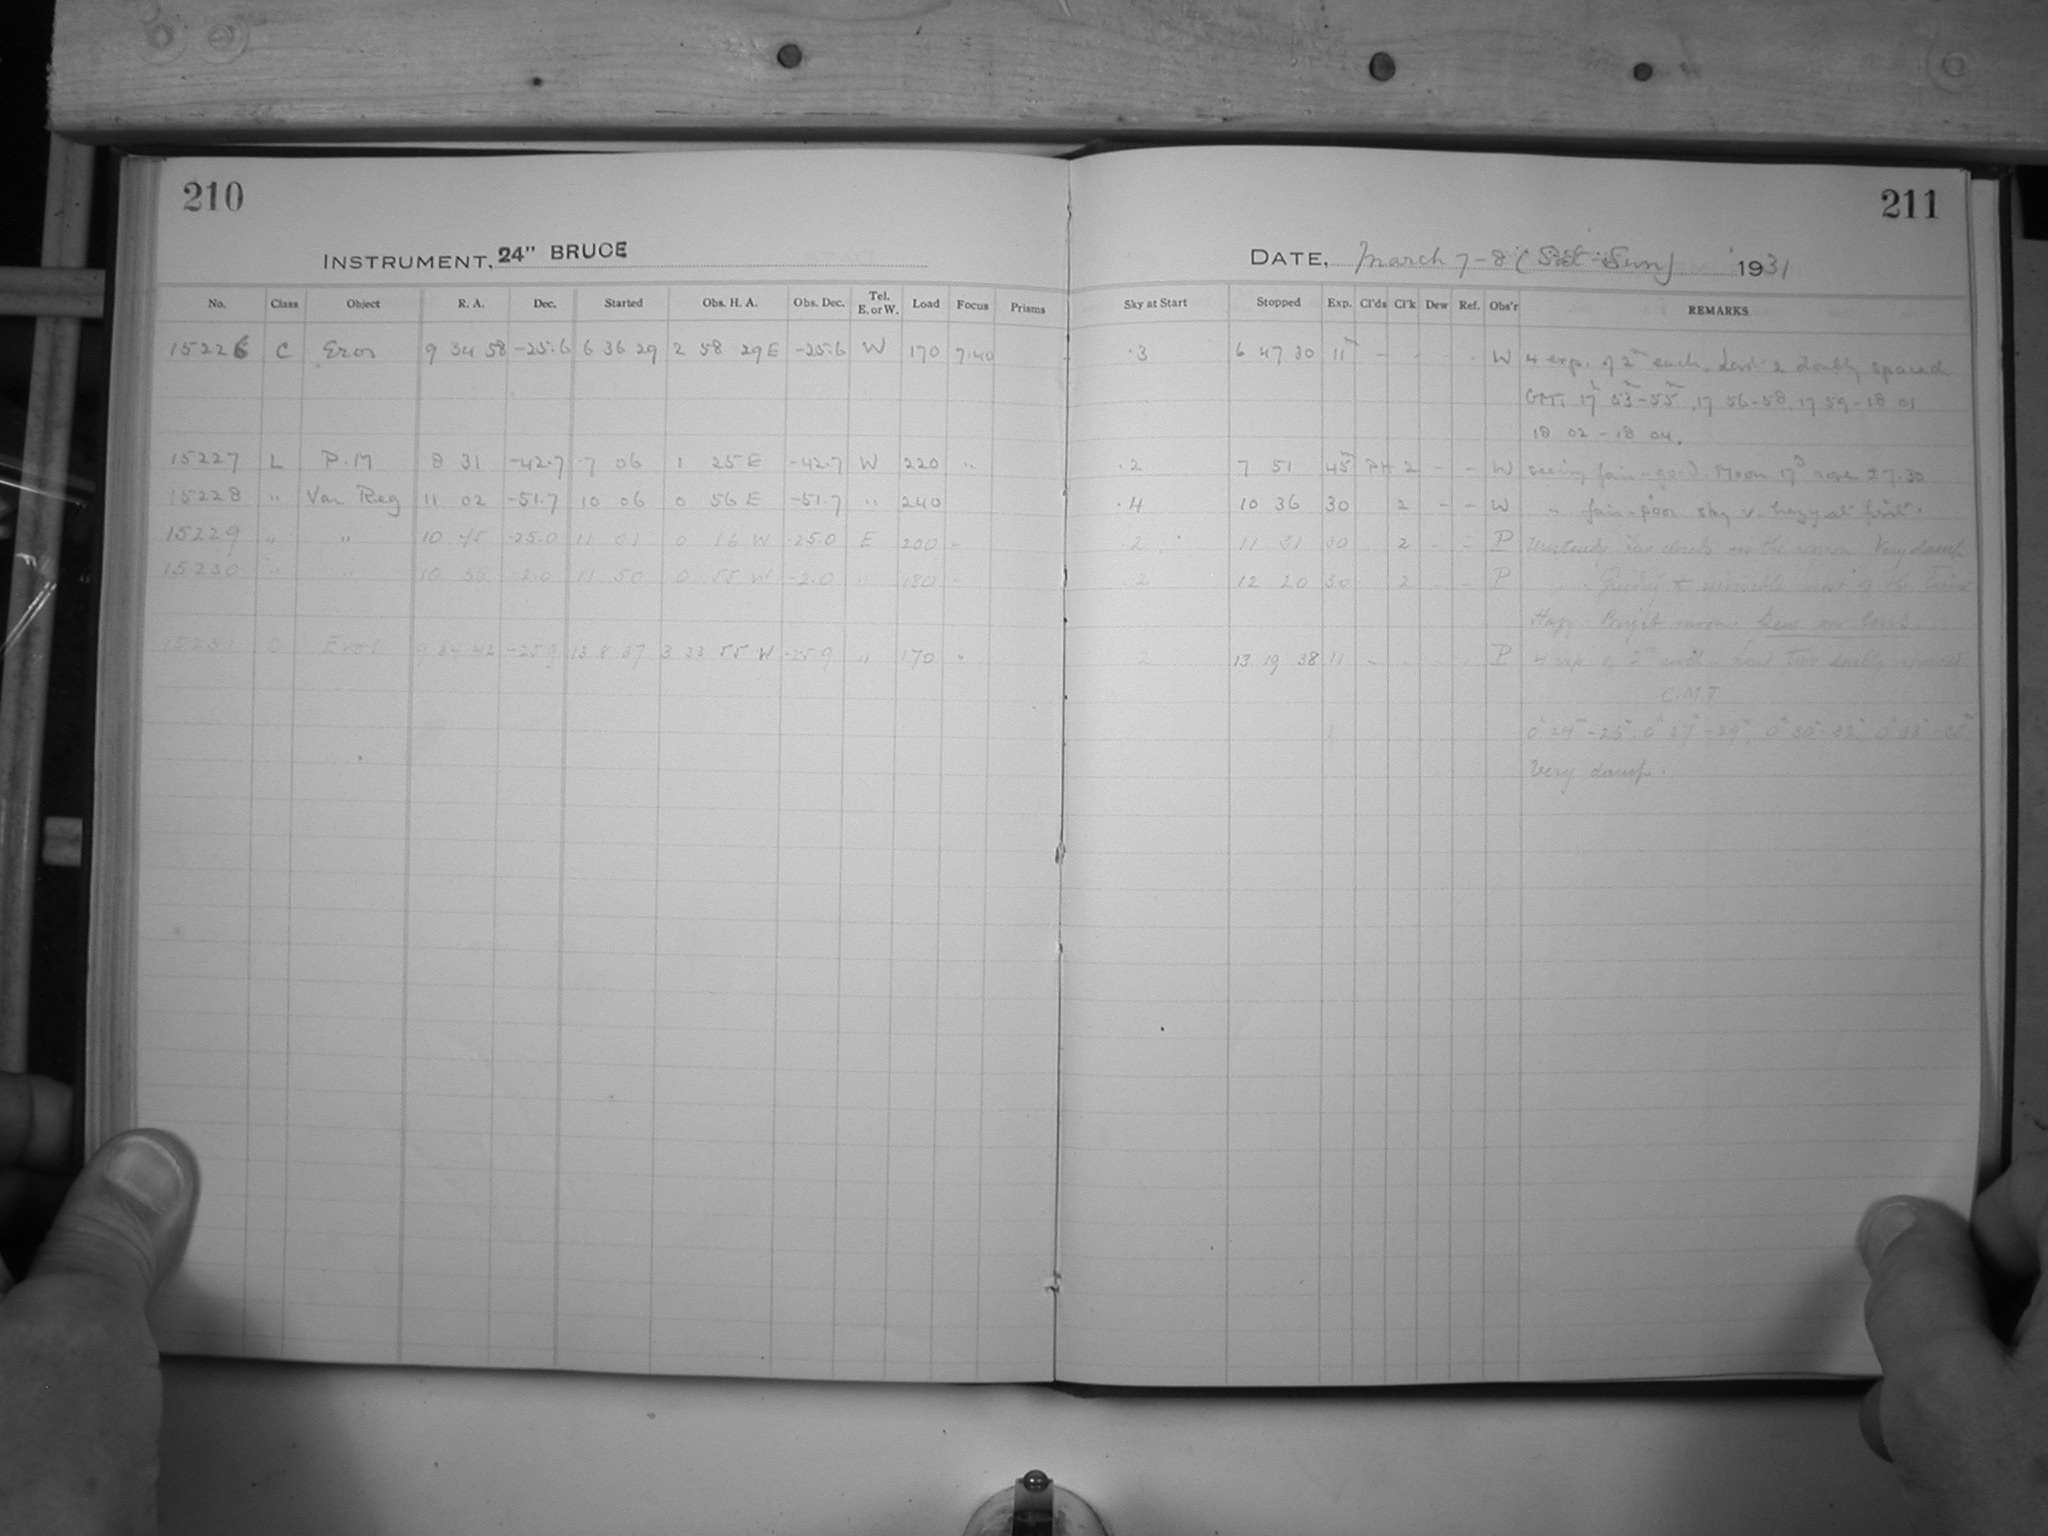 210
211
INSTRUMENT, 24" BRUCE
DATE, March 7-8 (Sat-Sun) 1931
No. Class Object R. A. Dec. Started Obs. H. A. Obs. Dec. Tel. E. or W. Load Focus Prisms Sky at Start Stopped Exp. Cl'ds Cl'k Dew Ref. Obs'r REMARKS
15226 C Eros 9 34 58 -25.6 6 36 29 2 58 29 E -25.6 W 170 7.40 .3 6 47 30 11m - W 4 exp. of 2m each. Last 2 doubly spaced
GMT 17h 53m-55m, 17 56-58, 17 59-18 01
18 02-18 04.
15227 L P.M 8 31 -42.7 7 06 1 25 E -42.7 W 220 " .2 7 51 45m 2 - - W seeing fair-good. Moon rose ± 7.30
15228 " Var Reg 11 02 -51.7 10 06 0 56 E -51.7 " 240 .4 10 36 30 2 - - W " fair-poor sky v. hazy at first.
15229 " " 10 45 -25.0 11 01 0 16 W -25.0 E 200 " .2 11 31 30 2 - - P clouds in the region Very damp
15230 " " 10 55 -2.0 11 50 0 55 W -2.0 " 180 " .2 12 20 30 2 - - P " most of the time
Hazy. Bright moon. Dew on lens.
15231 C Eros 9 34 42 -25.9 13 8 37 3 33 55 W -25.9 " 170 " 2 13 19 38 11 - P 4 exp of 2m each. Last two doubly spaced
G.M.T
Very damp.